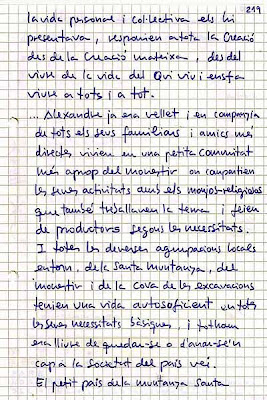 219
la vida personal i col·lectiva els hi
presentava, responien a tota la Creació
des de la Creació mateixa, des del
viure de la vida del Qui viu i ens fa
viure a tots i a tot.
... Alexandre ja era vellet i en companyia
de tots els seus familiars i amics més
directes vivien en una petita comunitat
més aprop del monestir on compartien
les seves activitats amb els monjos-religiosos
que també treballaven la terra i feien
de productors segons les necessitats.
I totes les diverses agrupacions locals
entorn de la Santa muntanya, del
monestir i de la Cova de les excavacions
tenien una vida autosuficient en totes
les seves necessitats bàsiques, i tothom
era lliure de quedar-se o d'anar-se'n
cap a la Societat del país veí.
El petit país de la muntanya Santa